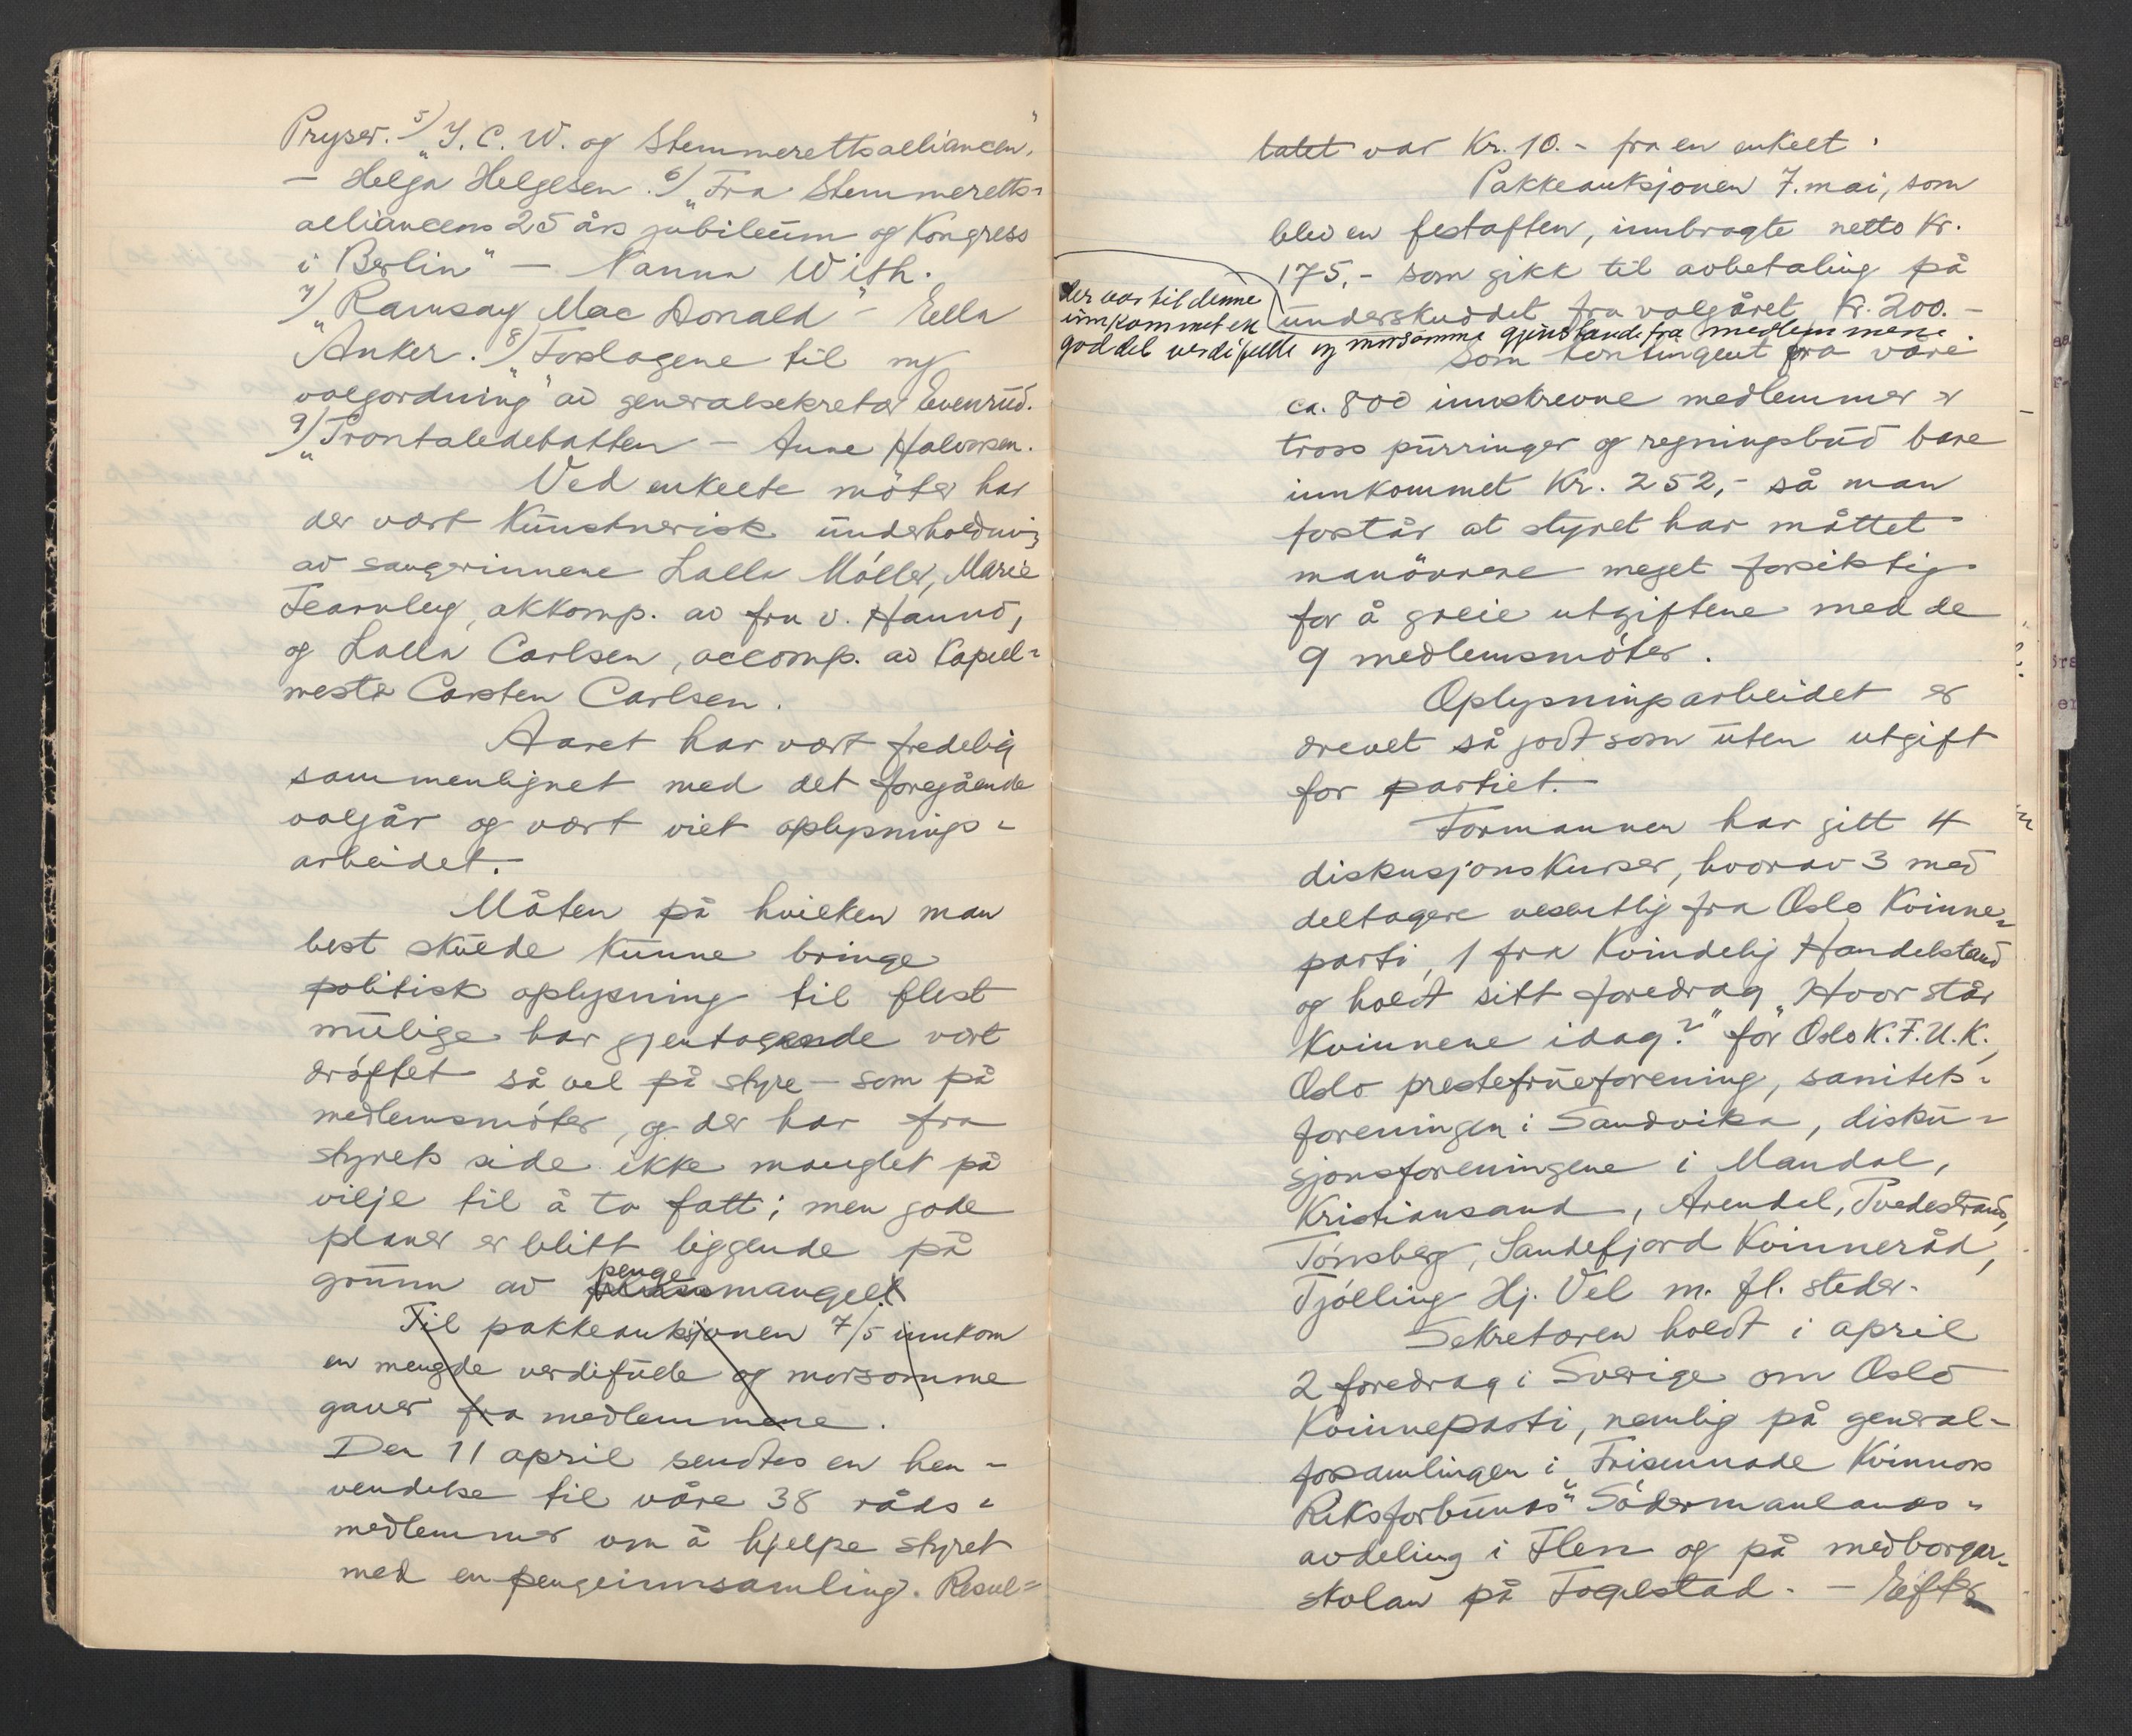 Pryser. 5/ „I. C. W. og Stemmerettsalliancen"
— Helga Helgesen. 6/ „Fra Stemmeretts-
alliancens 25 års jubileum og Kongress
i Berlin" — Nanna With.
7/ „Ramsay Mac Donald" — Ella
Anker. 8/ „Forslagene til ny
valgordning" av generalsekretær Evenrud.
9/ „Trontaledebatten — Aune Halvorsen.
Ved enkelte möter har
der vært Kunstnerisk underholdning
av sangerinnene Lalla Möller, Marie
Fearnley, akkomp. av fru v. Hanno,
og Lalla Carlsen, accomp. av Kapel-
mester Carsten Carlsen.
Aaret har vært fredelig
sammenlignet med det foregående
valgår og vært viet oplysnings-
arbeidet.
Måten på hvilken man
best skulde kunne bringe
politisk oplysning til flest
mulige har gjentagende vært
dröftet så vel på styre- som på
medlemsmöter, og der har fra
styrets side ikke manglet på
vilje til å ta fatt; men gode
planer er blitt liggende på
grunn av pengemangel.
Til pakkeauksjonen 7/5 innkom
en mengde verdifulle og morsomme
gaver fra medlemmene.
Den 11 april sendtes en hen-
vendelse til våre 38 råds-
medlemmer om å hjelpe styret
med en pengeinnsamling. Resul-
tatet var Kr. 10.- fra en enkelt.
Pakkeauksjonen 7. mai, som
blev en festaften, innbragte netto Kr.
175,- som gikk til avbetaling på
underskuddet fra valgåret, Kr. 200.-
der var til denne
innkommet en
god del verdifulle og morsomme gjenstande fra medlemmene
Som kontingent fra våre
ca. 800 innskrevne medlemmer er
tross purringer og regningsbud bare
innkommet Kr. 252,- så man
forstår at styret har måttet
manövrere meget forsiktig
for å greie utgiftene med de
9 medlemsmöter.
Oplysningsarbeidet er
drevet så godt som uten utgift
for partiet.
Formannen har gitt 4
diskusjonskurser, hvorav 3 med
deltagere vesentlig fra Oslo Kvinne-
parti, 1 fra Kvindelig Handelstand
og holdt sitt foredrag „Hvor står
Kvinnene idag?" for Oslo K.F.U.K.,
Oslo prestefrueforening, sanitets-
foreningen i Sandvika, disku-
sjonsforeningene i Mandal,
Kristiansand, Arendal, Tvedestrand,
Tönsberg, Sandefjord Kvinneråd,
Tjölling Hj. Vel m. fl. steder.
Sekretæren holdt i april
2 foredrag i Sverige om Oslo
Kvinneparti, nemlig på general-
forsamlingen i „Frisinnade Kvinnors
Riksforbunds" Södermanlands-
avdeling i Flen og på medborgar-
skolan på Fogelstad. — Efter